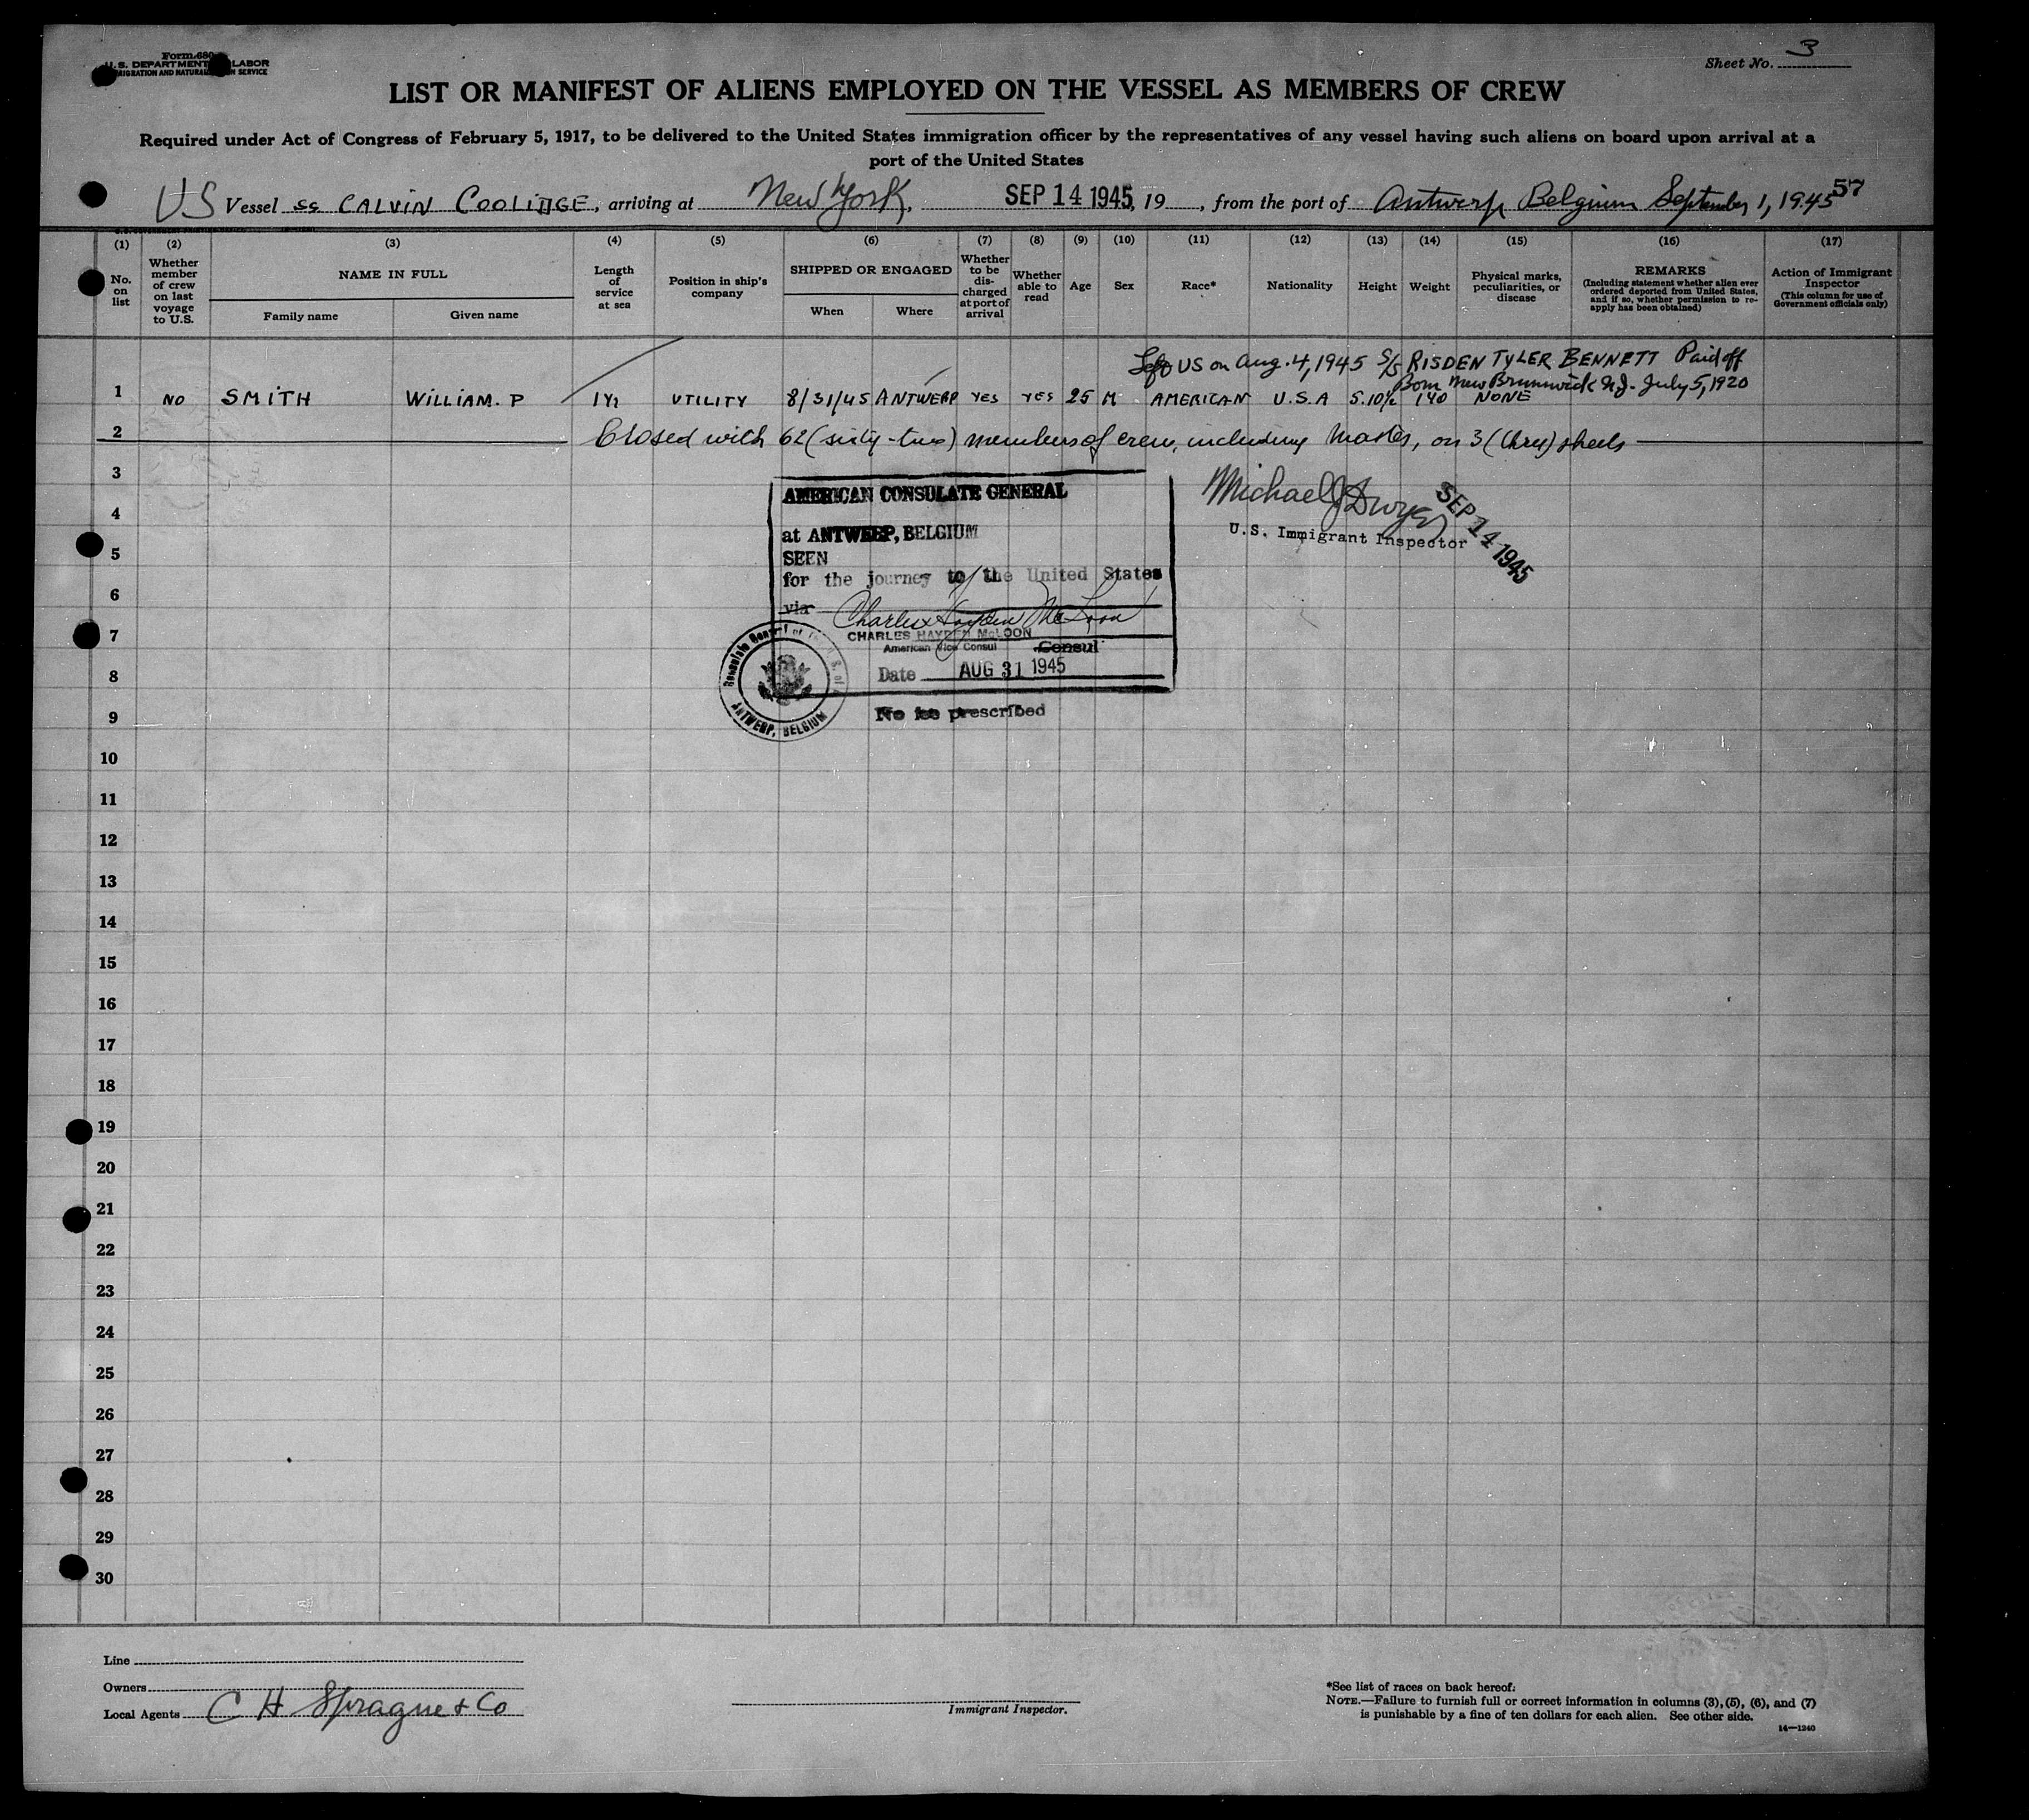 Form 680
U.S. DEPARTMENT LABOR
IMMIGRATION AND NATURALIZATION SERVICE
Sheet No. 3
LIST OR MANIFEST OF ALIENS EMPLOYED ON THE VESSEL AS MEMBERS OF CREW
Required under Act of Congress of February 5, 1917, to be delivered to the United States immigration officer by the representatives of any vessel having such aliens on board upon arrival at a
port of the United States
US Vessel SS CALVIN COOLIDGE, arriving at New York, SEP 14 1945, 19 , from the port of Antwerp Belgium September 1, 1945 57
(1) (2) (3) (4) (5) (6) (7) (8) (9) (10) (11) (12) (13) (14) (15) (16) (17)
No. on list
Whether member of crew on last voyage to U.S.
NAME IN FULL
Family name
Given name
Length of service at sea
Position in ship's company
SHIPPED OR ENGAGED
When
Where
Whether to be discharged at port of arrival
Whether able to read
Age
Sex
Race*
Nationality
Height
Weight
Physical marks, peculiarities, or disease
REMARKS
(Including statement whether alien ever ordered deported from United States, and if so, whether permission to re-apply has been obtained)
Action of Immigrant Inspector
(This column for use of Government officials only)
Left US on Aug. 4, 1945 S/S RISDEN TYLER BENNETT Paid off
Born New Brunswick N.J. July 5, 1920
1 NO SMITH WILLIAM. P 1 Yr UTILITY 8/31/45 ANTWERP YES YES 25 M AMERICAN U.S.A 5.10½ 140 NONE
2 Closed with 62 (sixty-two) members of crew, including Master, on 3 (three) sheets
3
4
5
6
7
8
9
10
11
12
13
14
15
16
17
18
19
20
21
22
23
24
25
26
27
28
29
30
AMERICAN CONSULATE GENERAL
at ANTWERP, BELGIUM
SEEN
for the journey to the United States
via
Charles Hayden McLoon
CHARLES HAYDEN McLOON
American Vice Consul Consul
Date AUG 31 1945
No fee prescribed
ANTWERP, BELGIUM
Michael J Dwyer
U.S. Immigrant Inspector
SEP 14 1945
Line
Owners
Local Agents C H Sprague & Co
Immigrant Inspector.
*See list of races on back hereof.
NOTE.—Failure to furnish full or correct information in columns (3), (5), (6), and (7)
is punishable by a fine of ten dollars for each alien. See other side.
14—1240